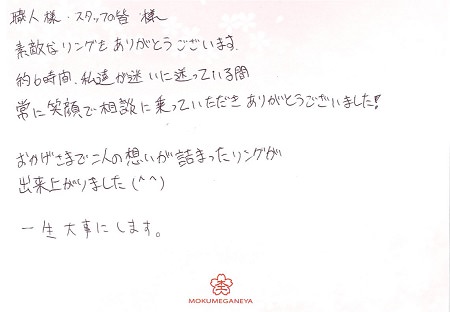 職人様・スタッフの皆様
素敵なリングをありがとうございます。
約6時間、私達が迷いに迷っている間
常に笑顔で相談に乗っていただきありがとうございました!!
おかげさまで二人の想いが詰まったリングが
出来上がりました(^^)
一生大事にします。
MOKUMEGANEYA